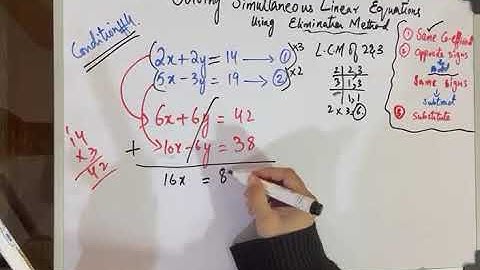 Solving Simultaneous Linear Equations
Using Elimination Method
Condition #4
2x+2y = 14 → ① ×3
5x-3y = 19 → ② ×2
6x+6y = 42
+ 10x-6y = 38
16x = 8
14
×3
42
L.C.M of 2&3
2 | 2,3
3 | 1,3
1,1
2 × 3 = 6
① Same Co-efficient
② opposite signs
Add
Same signs
Subtract
③ Substitute